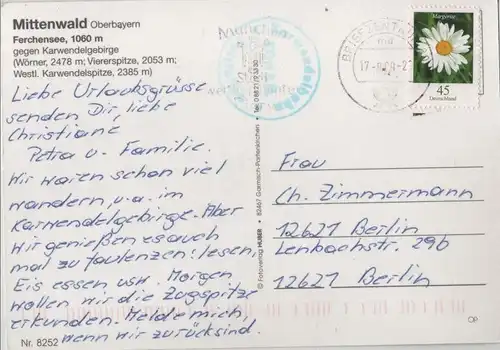 Mittenwald Oberbayern
Ferchensee, 1060 m
gegen Karwendelgebirge
(Wörner, 2478 m; Viererspitze, 2053 m;
Westl. Karwendelspitze, 2385 m)
Liebe Urlaubsgrüsse
senden Dir, liebe
Christiane
Petra u. Familie.
Wir waren schon viel
wandern, u.a. im
Karwendelgebirge. Aber
wir genießen es auch
mal zu faulenzen: lesen,
Eis essen usw. Morgen
wollen wir die Zugspitze
erkunden. Melde mich,
wenn wir zurück sind.
Nr. 8252
© Fotoverlag HUBER · 82467 Garmisch-Partenkirchen
BRIEFZENTRUM
Margerite
45
Deutschland
Frau
Ch. Zimmermann
12621 Berlin
Lenbachstr. 29b
12621 Berlin